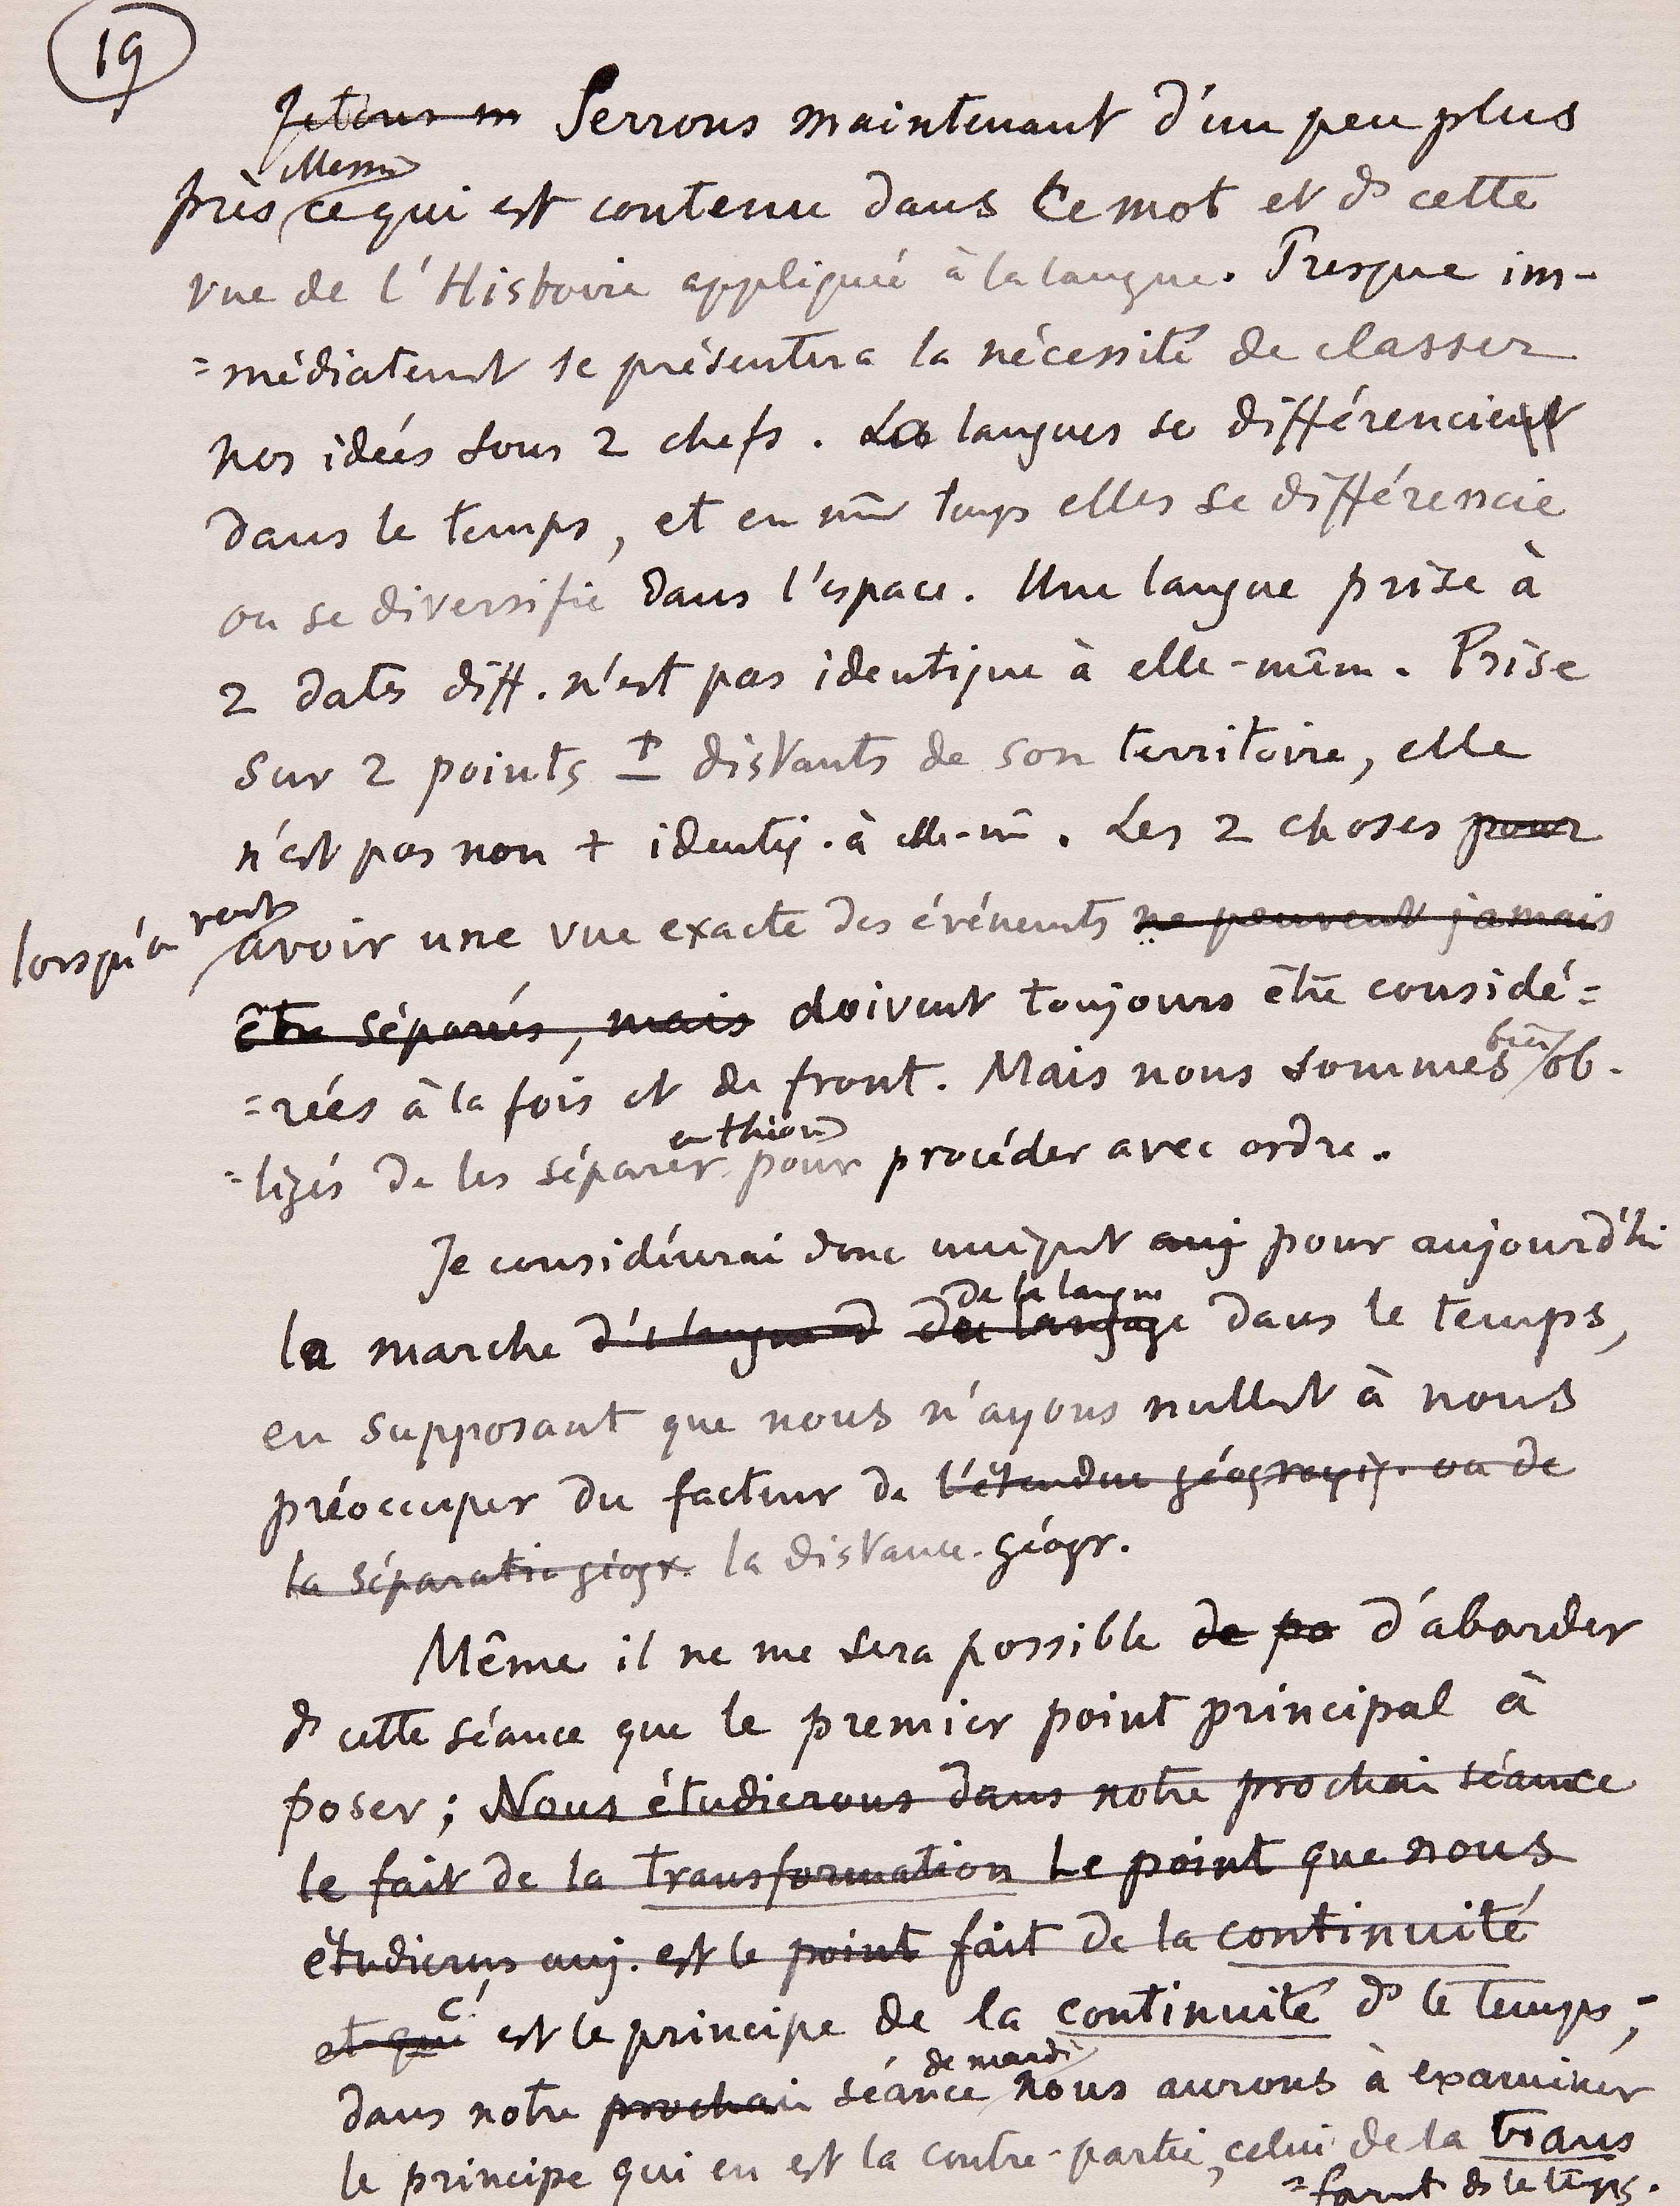 19
Jetons m Serrons maintenant d'un peu plus
Messrs
près ce qui est contenu dans ce mot et ds cette
vue de l'Histoire appliquée à la langue. Presque im-
=médiatemt se présentera la nécessité de classer
nos idées sous 2 chefs. Les langues se différencient
dans le temps, et en mm temps elles se différencie
ou se diversifie dans l'espace. Une langue prise à
2 dates diff. n'est pas identique à elle-mêm. Prise
sur 2 points ± distants de son territoire, elle
n'est pas non + identiq. à elle-m̂. Les 2 choses pour
lorsqu'on veut avoir une vue exacte des événemts ne peuvent jamais
être séparés, mais doivent toujours être considé=
=rées à la fois et de front. Mais nous sommes bien ob-
en théorie
=ligés de les séparer pour procéder avec ordre.
Je considérerai donc uniqumt auj pour aujourd'hi
de la langue
la marche du langage dans le temps,
en supposant que nous n'ayons nullemt à nous
préoccuper du facteur de l'étendue géographiq. ou de
la séparation géogr. la distance géogr.
Même il ne me sera possible de po d'aborder
ds cette séance que le premier point principal à
poser; Nous étudierons dans notre prochai séance
le fait de la transformation Le point que nous
étudierons auj. est le point fait de la continuité
et qui c' est le principe de la continuité ds le temps;
de mardi
dans notre prochain séance nous aurons à examiner
le principe qui en est la contre-partie, celui de la trans
=formt ds le temps.